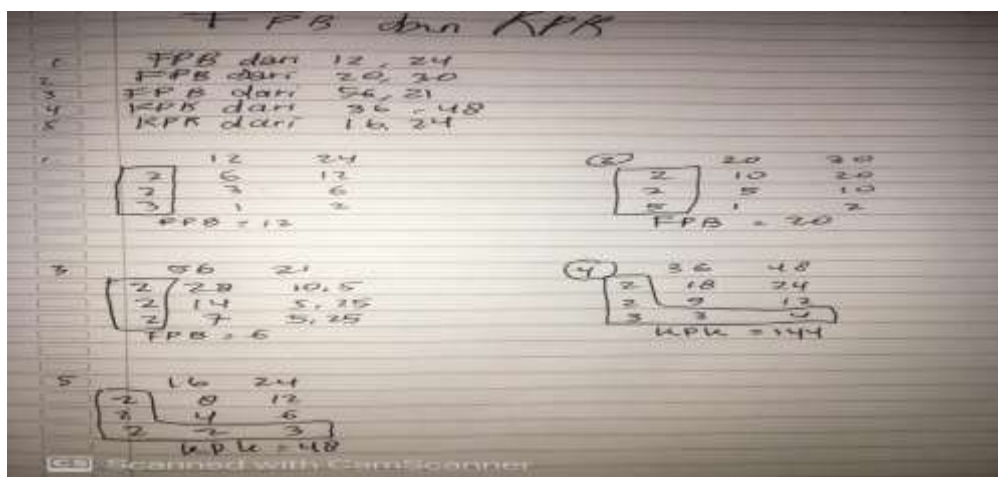 FPB dan KPK
1 FPB dari 12, 24
2 FPB dari 20, 30
3 FPB dari 56, 21
4 KPK dari 36, 48
5 KPK dari 16, 24
1. 12 24
2 6 12
2 3 6
3 1 2
FPB = 12
2 20 30
2 10 20
2 5 10
5 1 2
FPB = 20
3 56 21
2 28 10,5
2 14 5,25
2 7 5,25
FPB = 6
4 36 48
2 18 24
2 9 12
3 3 4
KPK = 144
5 16 24
2 8 12
2 4 6
2 2 3
KPK = 48
CS Scanned with CamScanner